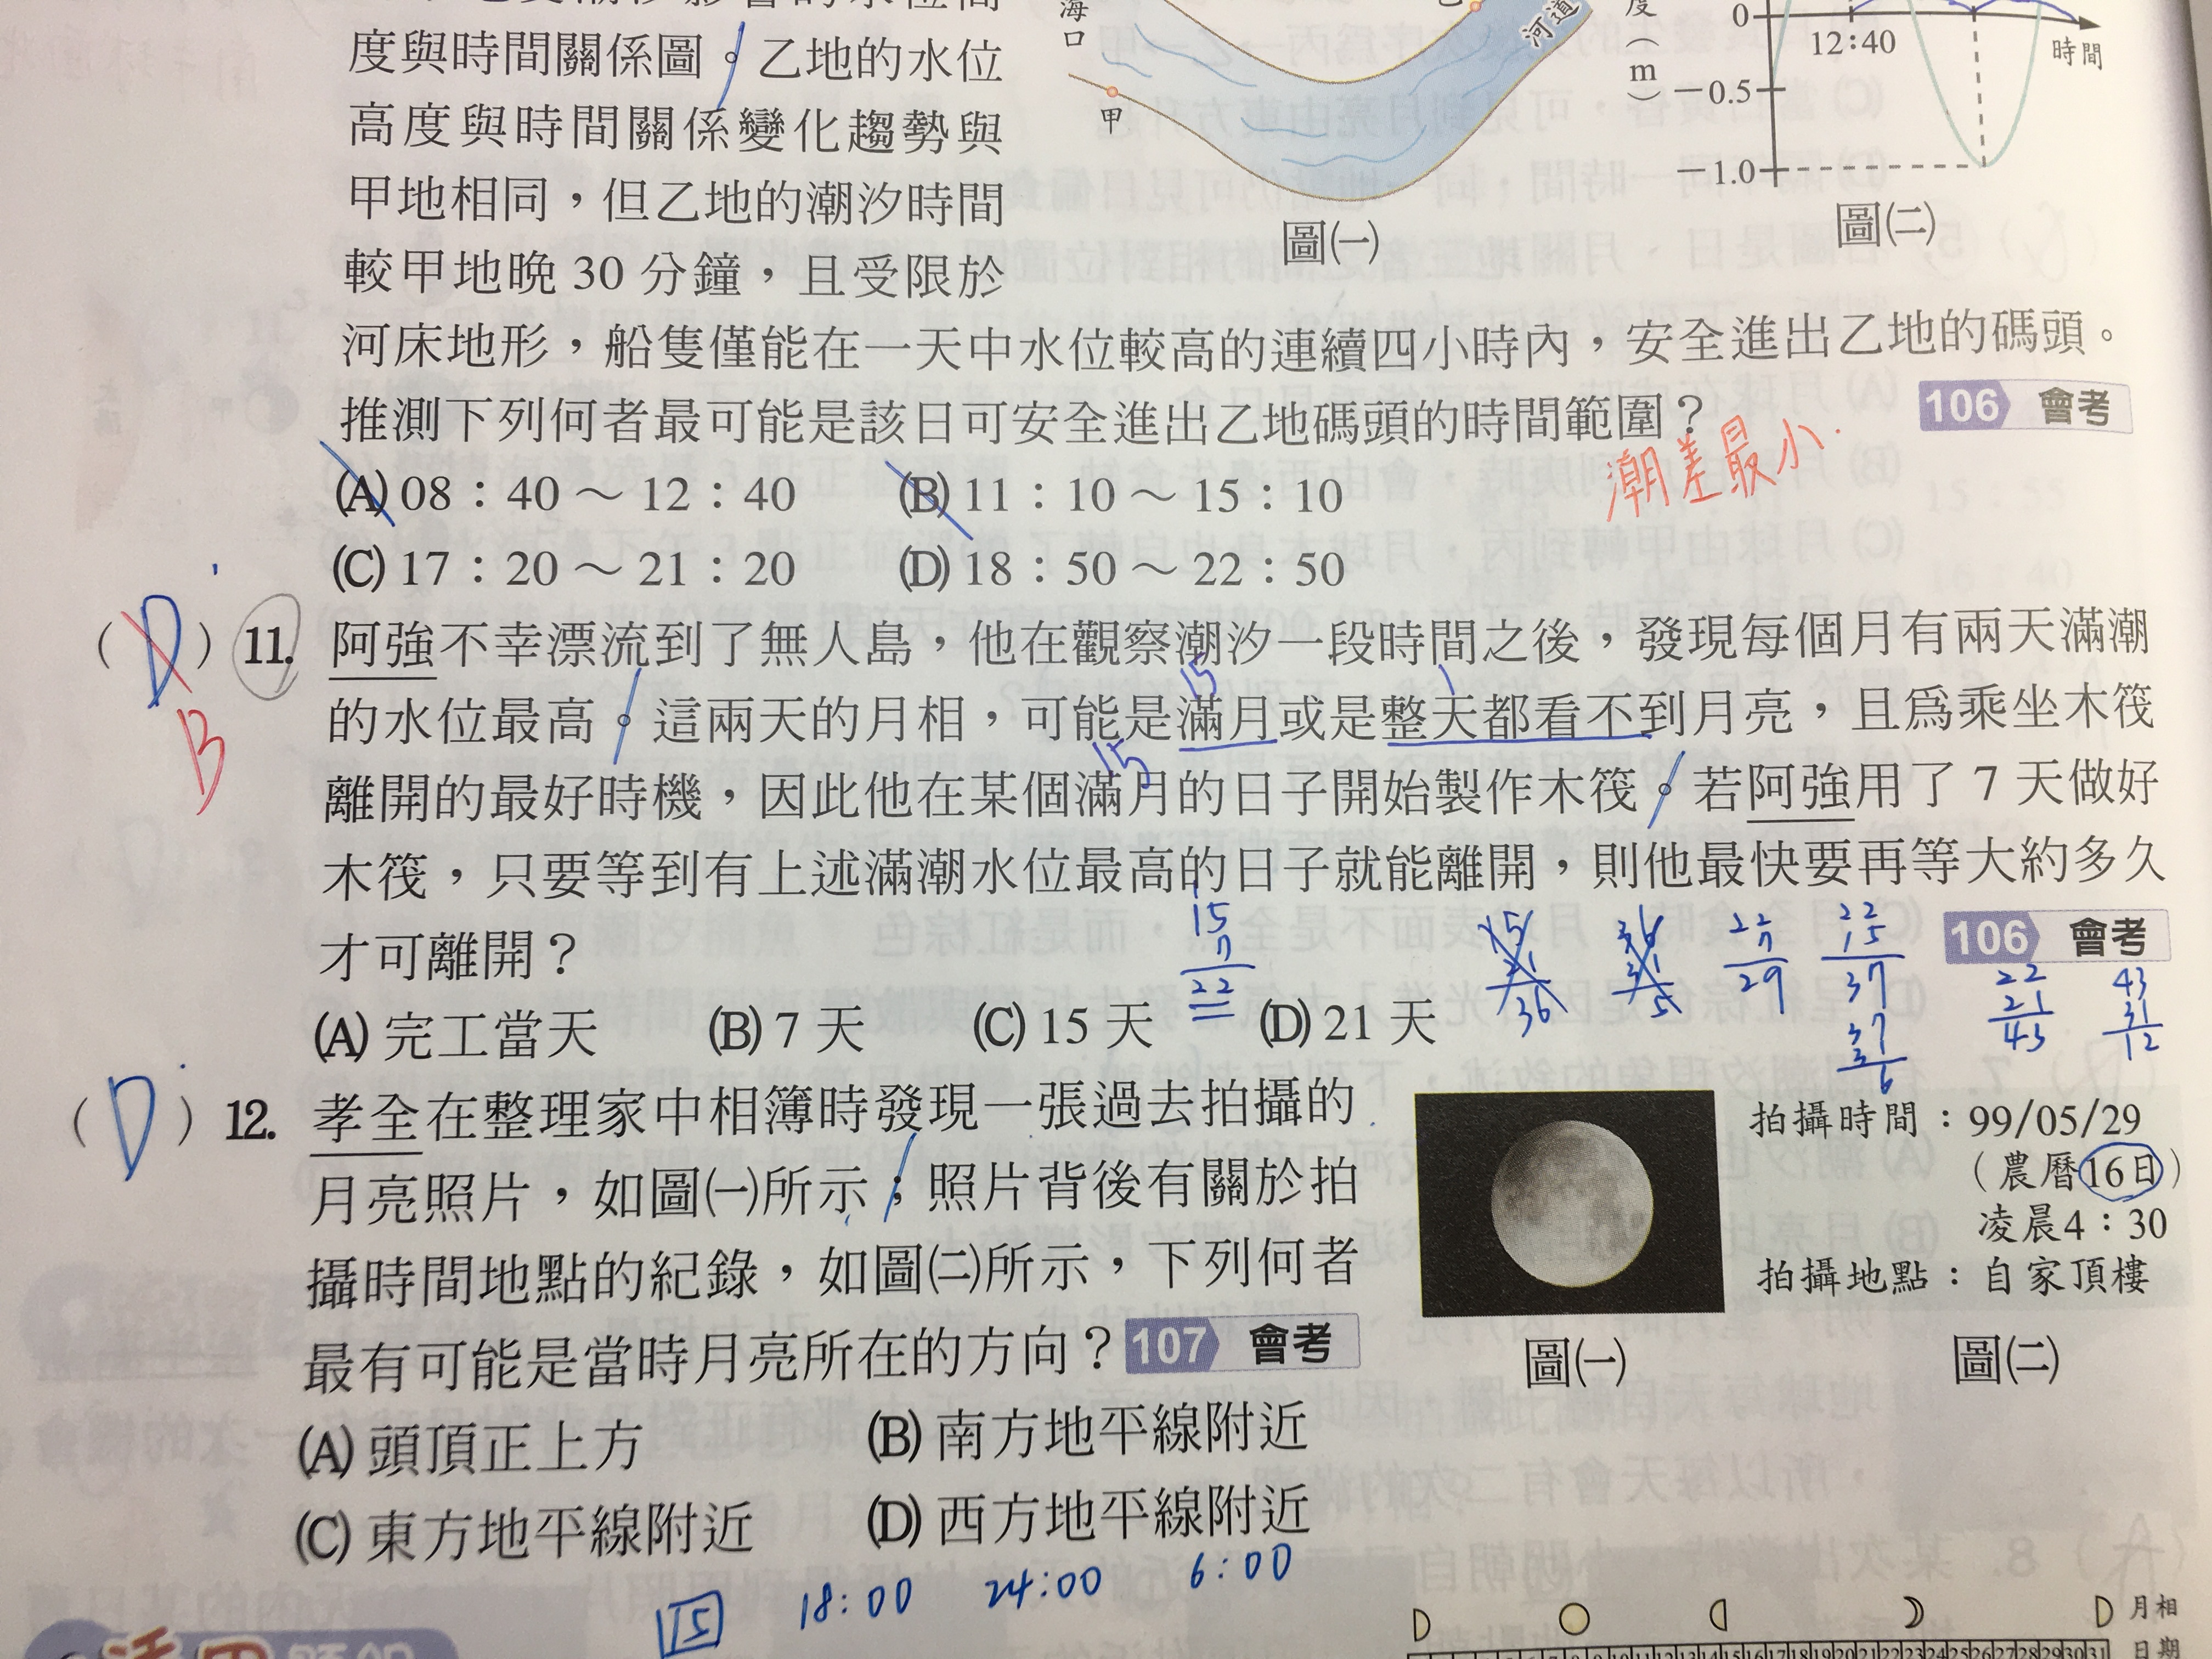 度與時間關係圖。乙地的水位
高度與時間關係變化趨勢與
甲地相同，但乙地的潮汐時間
較甲地晚 30 分鐘，且受限於
河床地形，船隻僅能在一天中水位較高的連續四小時內，安全進出乙地的碼頭。
推測下列何者最可能是該日可安全進出乙地碼頭的時間範圍？
106 會考
潮差最小
(A) 08：40～12：40 (B) 11：10～15：10
(C) 17：20～21：20 (D) 18：50～22：50
海口
甲
河道
圖㈠
度（m）
0
12:40
時間
－0.5
－1.0
圖㈡
（D）11. 阿強不幸漂流到了無人島，他在觀察潮汐一段時間之後，發現每個月有兩天滿潮
B
15
的水位最高。這兩天的月相，可能是滿月或是整天都看不到月亮，且為乘坐木筏
15
離開的最好時機，因此他在某個滿月的日子開始製作木筏。若阿強用了 7 天做好
木筏，只要等到有上述滿潮水位最高的日子就能離開，則他最快要再等大約多久
才可離開？
106 會考
15
7
22
15
21
36
36
31
5
22
7
29
22
15
37
37
31
6
22
21
43
43
31
12
(A) 完工當天 (B) 7 天 (C) 15 天 (D) 21 天
（D）12. 孝全在整理家中相簿時發現一張過去拍攝的
月亮照片，如圖㈠所示；照片背後有關於拍
攝時間地點的紀錄，如圖㈡所示，下列何者
最有可能是當時月亮所在的方向？ 107 會考
(A) 頭頂正上方 (B) 南方地平線附近
(C) 東方地平線附近 (D) 西方地平線附近
拍攝時間：99/05/29
（農曆16日）
凌晨4：30
拍攝地點：自家頂樓
圖㈠
圖㈡
15 18:00 24:00 6:00
月相
日期